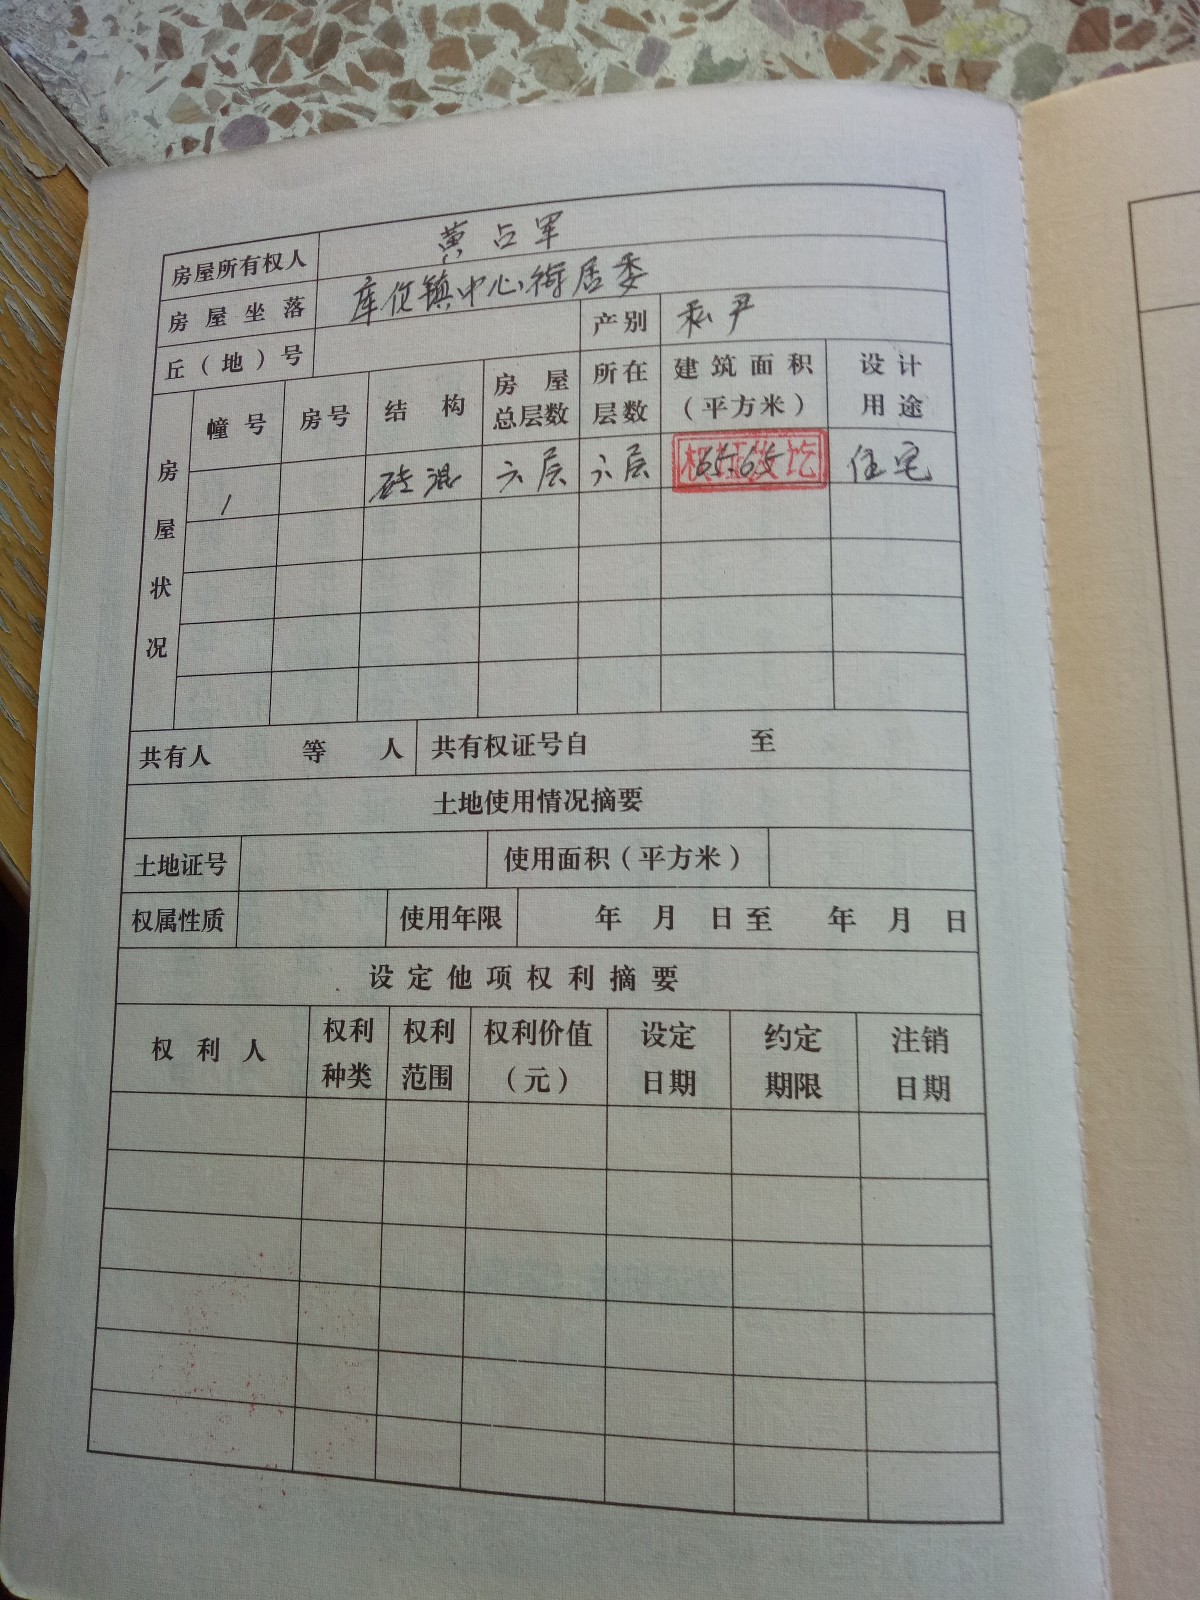 房屋所有权人 黄占军
房屋坐落 库伦镇中心街居委
丘（地）号 产别 私产
房屋状况
幢号 房号 结构 房屋总层数 所在层数 建筑面积（平方米） 设计用途
1 砼混 六层 六层 65.65 住宅
共有人 等 人 共有权证号自 至
土地使用情况摘要
土地证号 使用面积（平方米）
权属性质 使用年限 年 月 日至 年 月 日
设定他项权利摘要
权利人 权利种类 权利范围 权利价值（元） 设定日期 约定期限 注销日期